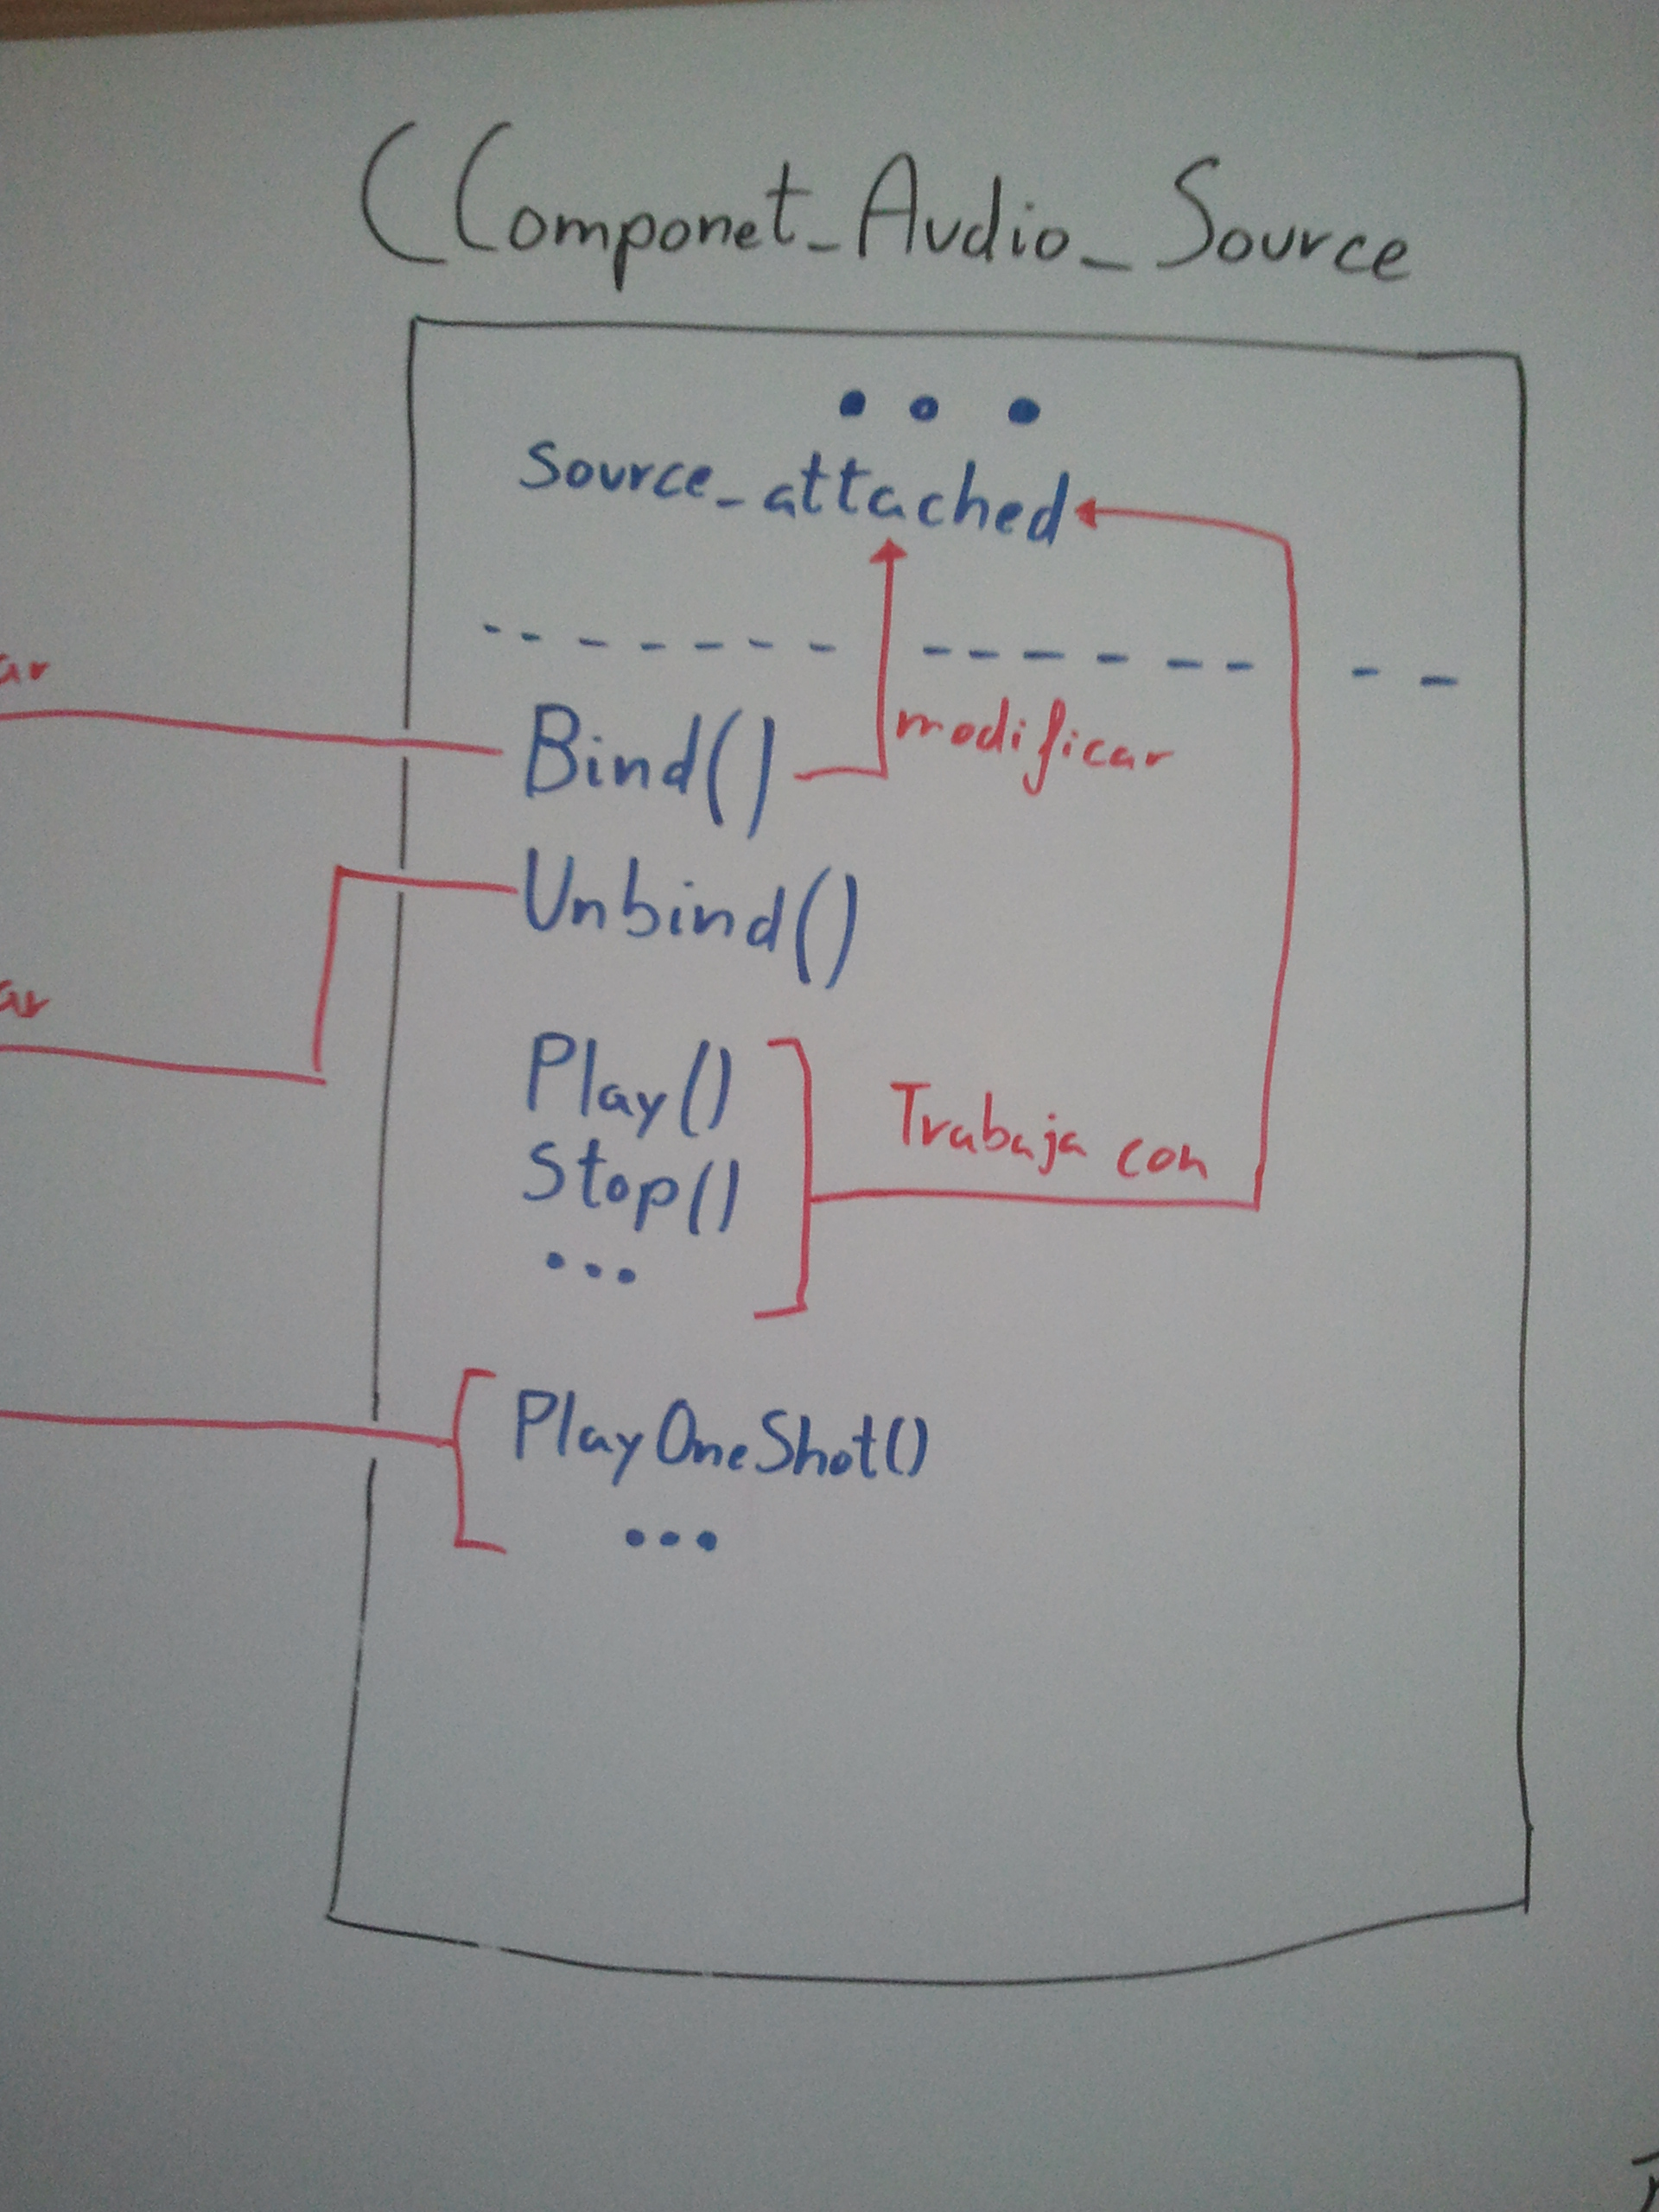 CComponet_Audio_Source
• • •
source_attached
Bind()
modificar
Unbind()
Play()
Stop()
...
Trabaja con
PlayOneShot()
...